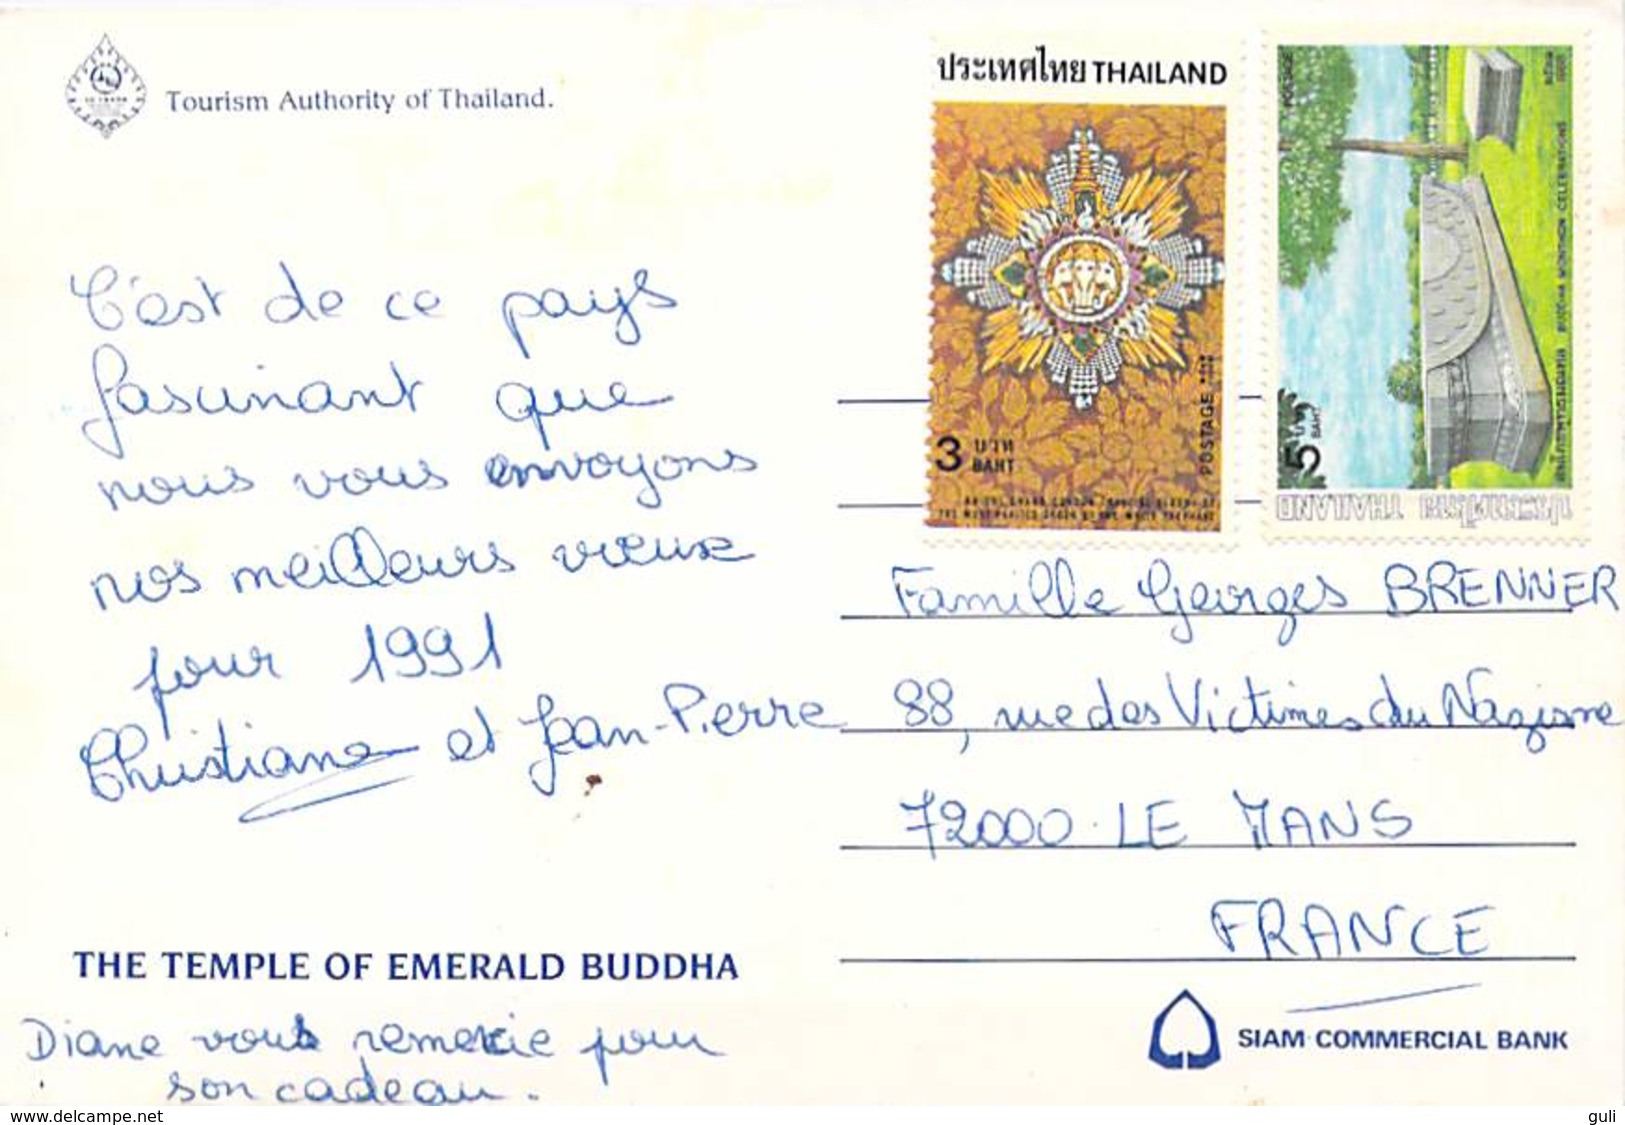 Tourism Authority of Thailand.
C'est de ce pays
fascinant que
nous vous envoyons
nos meilleurs vœux
pour 1991
Christiane et Jean-Pierre
THE TEMPLE OF EMERALD BUDDHA
Diane vous remercie pour
son cadeau.
ประเทศไทย THAILAND
3 บาท
BAHT
POSTAGE
POSTAGE
5 บาท
BAHT
BUDDHA MONTHON CELEBRATIONS
ประเทศไทย THAILAND
Famille Georges BRENNER
88, rue des Victimes du Nazisme
72000 LE MANS
FRANCE
SIAM COMMERCIAL BANK
www.delcampe.net
guli